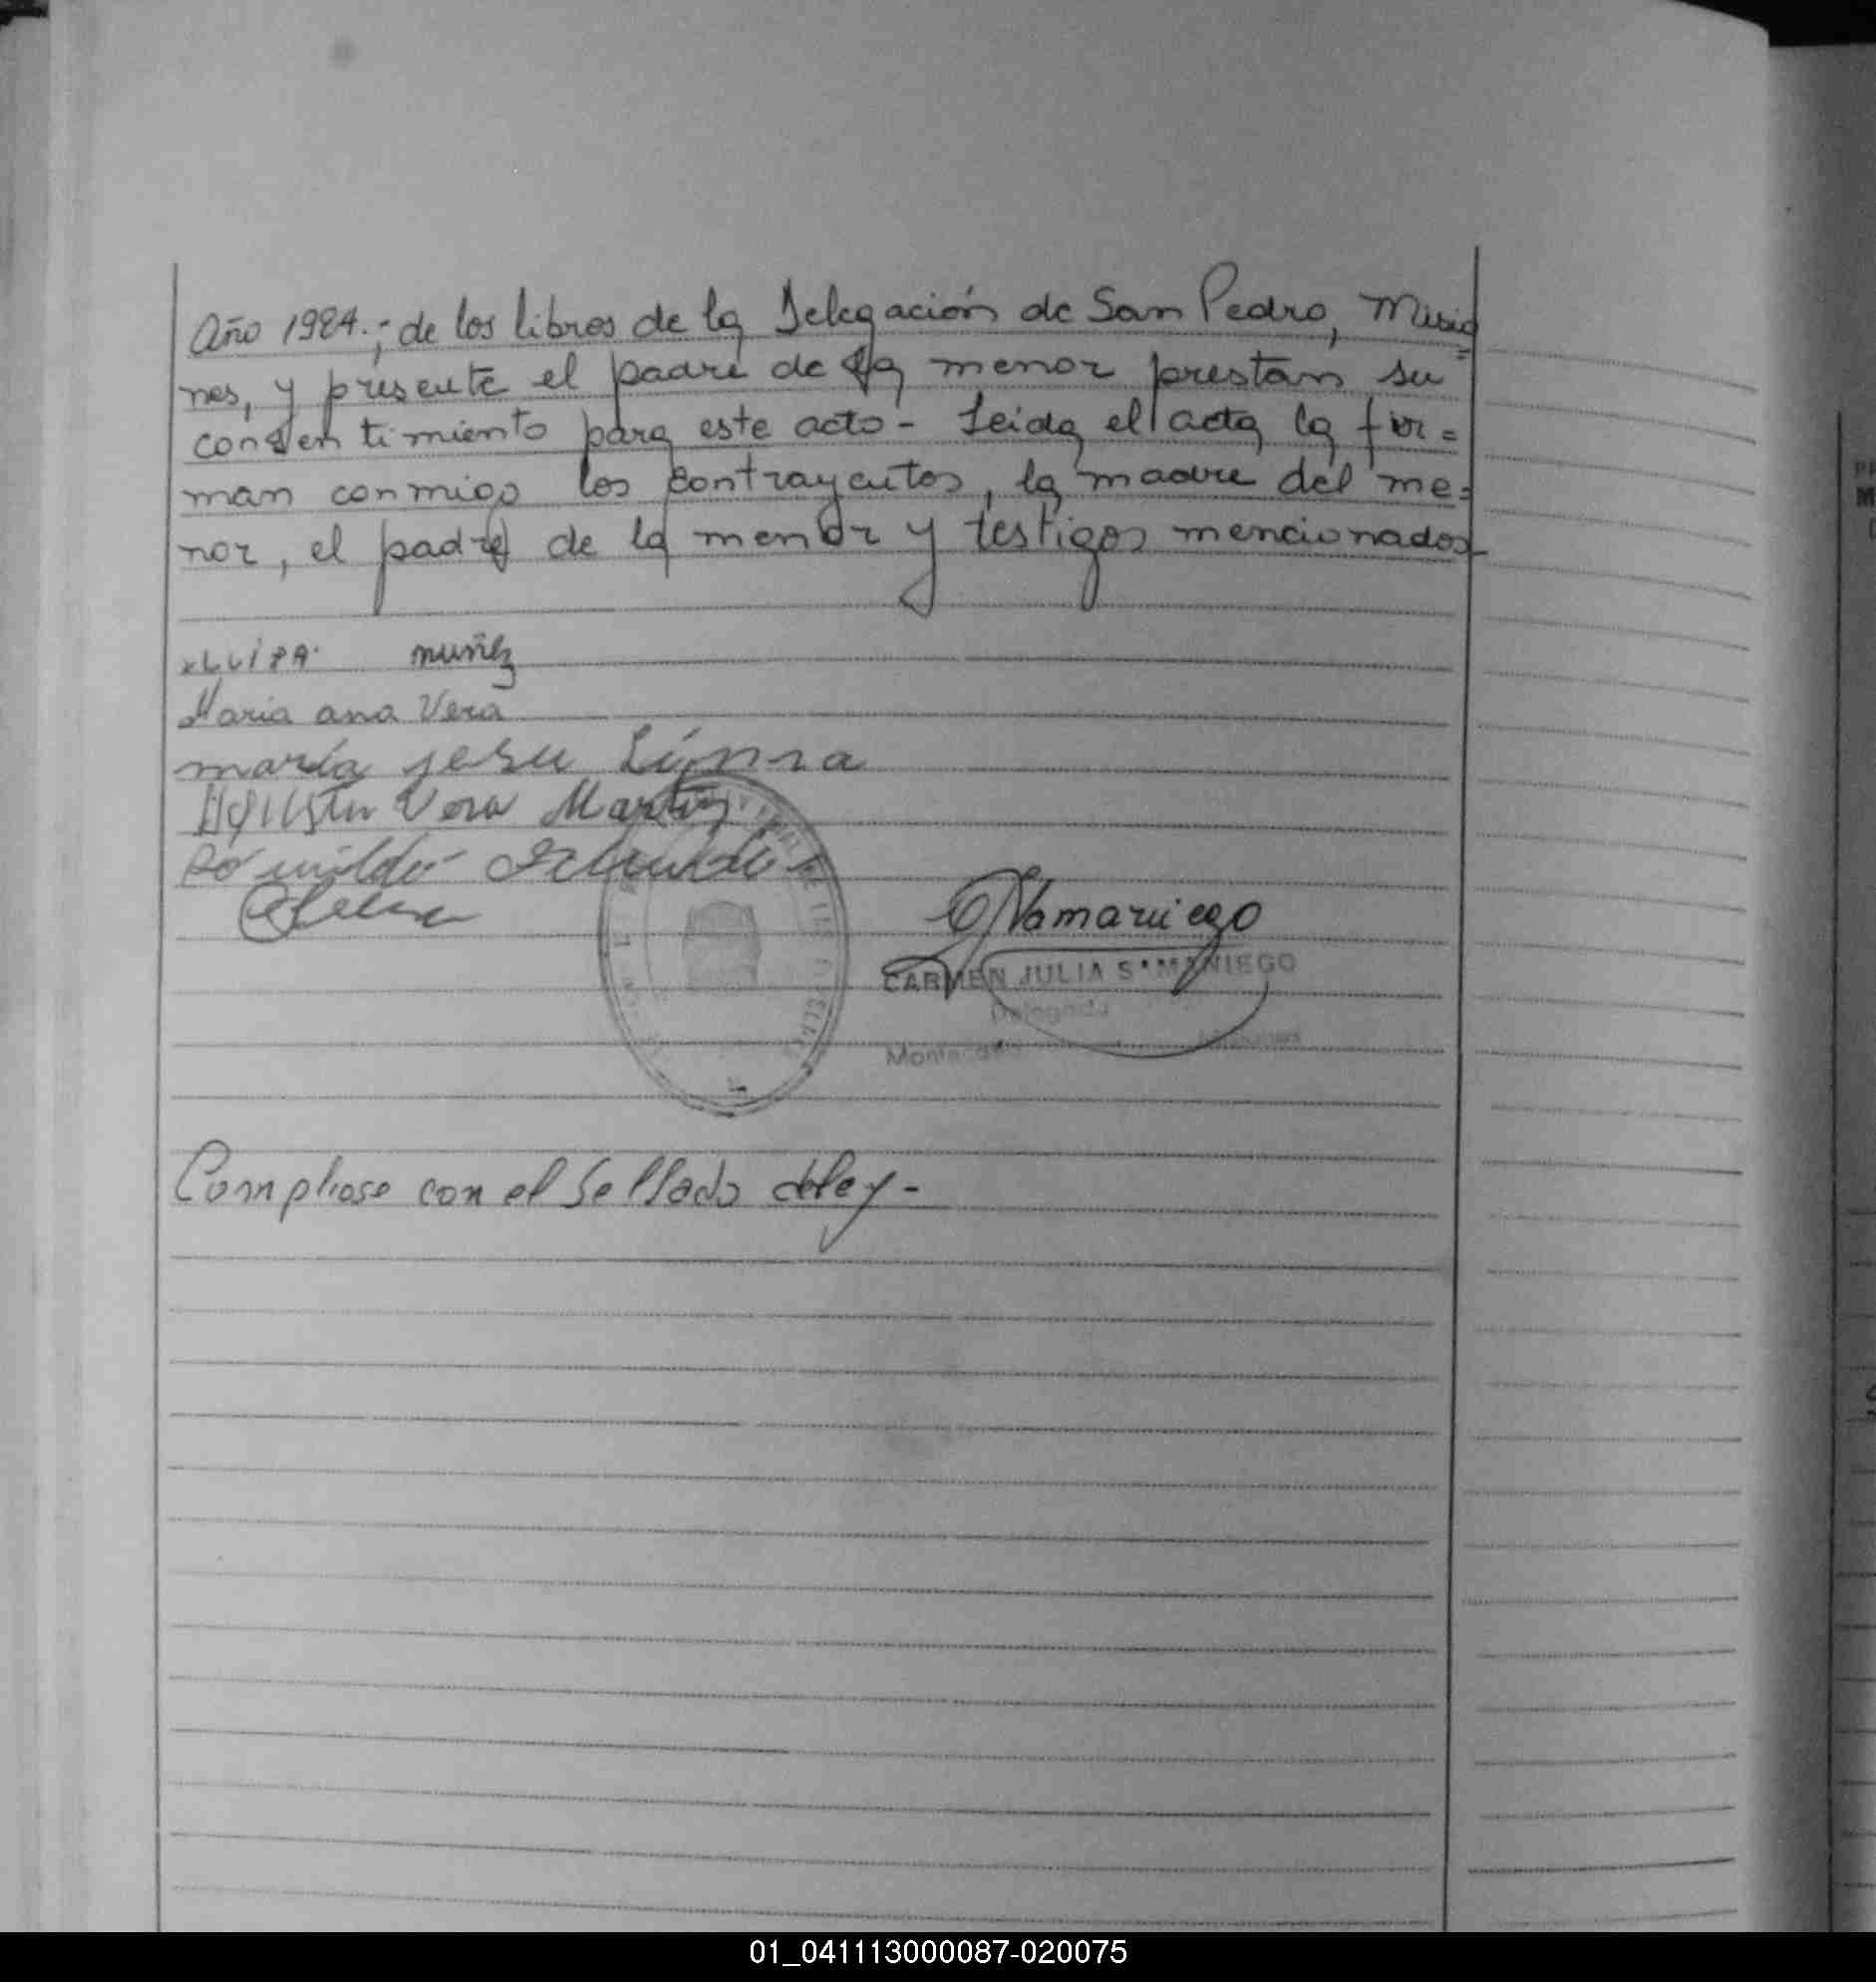 Año 1984.; de los libros de la Delegación de San Pedro, Misio
nes, y presente el padre de la menor prestan su
consentimiento para este acto - Leida el acta la fir=
man conmigo los contrayentes, la madre del me=
nor, el padre de la menor y testigos mencionados-
xLuisa nuñez
Maria ana Vera
maría jesu
Agustin Vera
CARMEN JULIA SAMANIEGO
Delegada
Compliose con el Sellado deley-
01_041113000087-020075